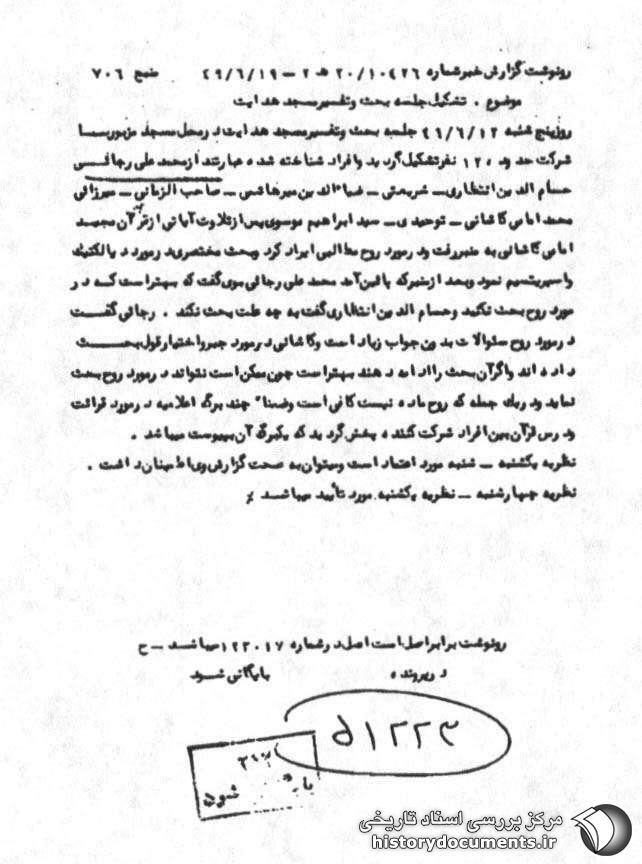 رونوشت گزارش خبر شماره ۲۰/۱۰۴۲۶ هـ ۲ – ۴۹/۶/۱۹ منبع ۷۰۶
موضوع . تشکیل جلسه بحث وتفسیر مسجد هدایت
روز پنج شنبه ۴۹/۶/۱۲ جلسه بحث وتفسیر مسجد هدایت در محل مسجد مزبور با
شرکت حدود ۱۲۰ نفر تشکیل گردید و افراد شناخته شده عبارتند از محمد علی رجائی
حسام الدین انتظاری – شریعتی – ضیاءالدین میرهاشمی – صاحب الزمانی – میرزائی
محمد امامی کاشانی – توحیدی – سید ابراهیم موسوی پس از تلاوت آیاتی از قرآن مجید
امامی کاشانی به منبر رفت و در مورد روح مطالبی ایراد کرد و بحث مختصری در مورد دیالکتیک
و امپریسیم نمود و بعد از منبر که پائین آمد محمد علی رجائی بوی گفت که بهتر است که در
مورد روح بحث نکنید و حسام الدین انتظاری گفت به چه علت بحث نکند . رجائی گفت
در مورد روح سئوالات بدون جواب زیاد است و کاشانی در مورد جبر و اختیار قول بحث
داده اند و اگر آن بحث را ادامه دهند بهتر است چون ممکن است نتواند در مورد روح بحث
نماید و در یک جمله که روح ماده نیست کافی است و ضمنا" چند برگ اعلامیه در مورد قرائت
و درس قرآن بین افراد شرکت کننده پخش گردید که یکبرگ آن بپیوست میباشد .
نظریه یکشنبه – شنبه مورد اعتماد است و میتوان به صحت گزارش وی اطمینان داشت .
نظریه چهارشنبه – نظریه یکشنبه مورد تأیید میباشد ٪
رونوشت برابر اصل است اصل در شماره ۱۲۳۰۱۷ میباشد – ح
در پرونده بایگانی شود
شود
مرکز بررسی اسناد تاریخی
historydocuments.ir